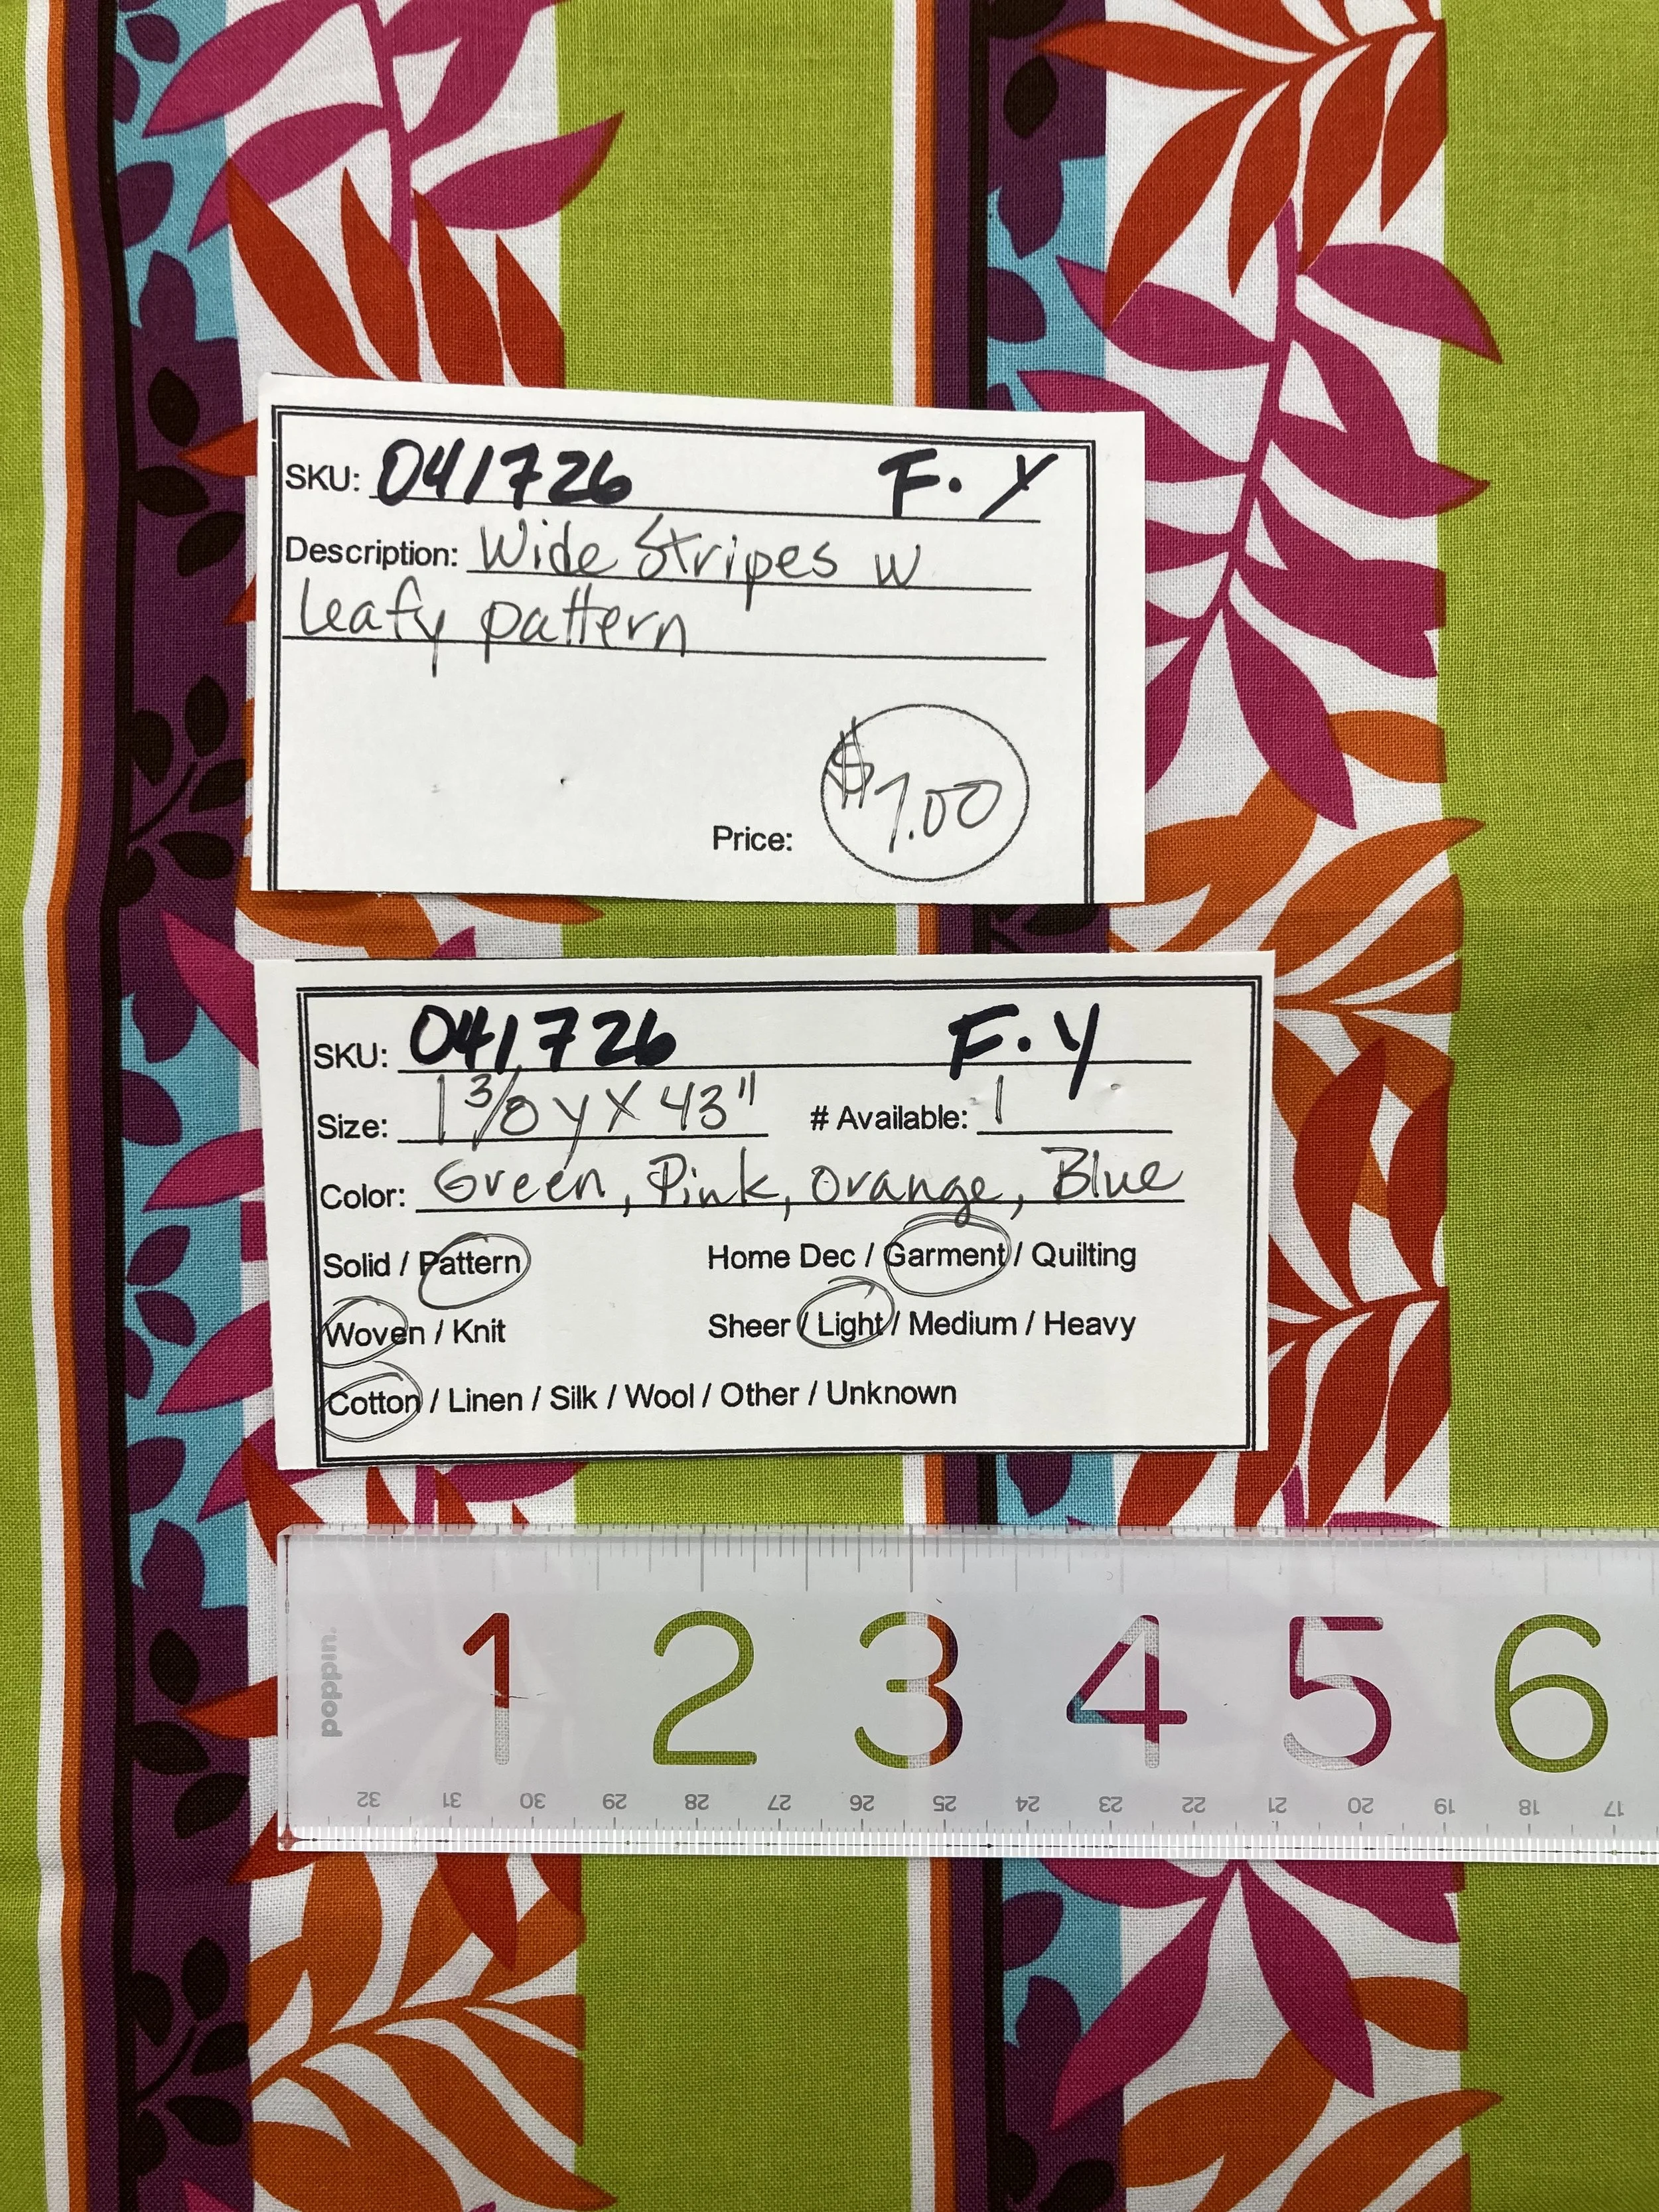 SKU: 041726 F.Y
Description: Wide Stripes w
leafy pattern
Price: $7.00
SKU: 041726 F.Y
Size: 1 3/8 y X 43" # Available: 1
Color: Green, Pink, Orange, Blue
Solid / Pattern Home Dec / Garment / Quilting
Woven / Knit Sheer / Light / Medium / Heavy
Cotton / Linen / Silk / Wool / Other / Unknown
poppin.
1 2 3 4 5 6
32 31 30 29 28 27 26 25 24 23 22 21 20 19 18 17